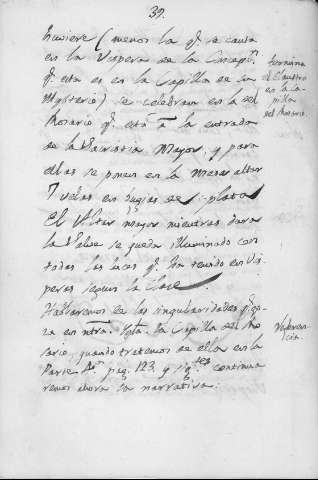 39.
huviere (menos la q.e se canta
en la Vispera de la Concep.n
q.e esta es en la Capilla de su
Mysterio) se celebran en la del
Rosario q.e está á la entrada
de la Sacristia Mayor, y para
ellas se ponen en la Mesa altar
7 velas en bugias de plata
El Altar mayor mientras dura
la Salve se queda illuminado con
todas las luces q.e ha tenido en Vis-
peras segun la Clase
Hablaremos de las singularidades q.e go-
za en ntra. Ygla. la Capilla del Ro-
sario, quando tratemos de ella en la
Parte pag. 123, y sig.tes continua
remos ahora la narrativa.
termina
el Claustro
en la Ca-
pilla
del Rosario.
Veferen-
cia.